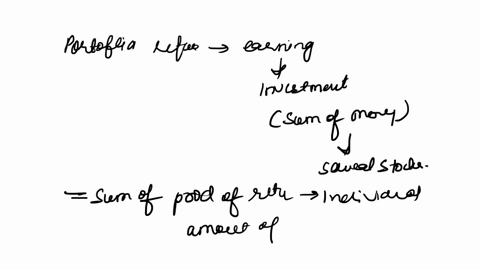 Portoflia refus → earning
↓
Investment
(Sum of money)
↓
Saveral stocks.
= Sum of prod of retu → Individual
amount of